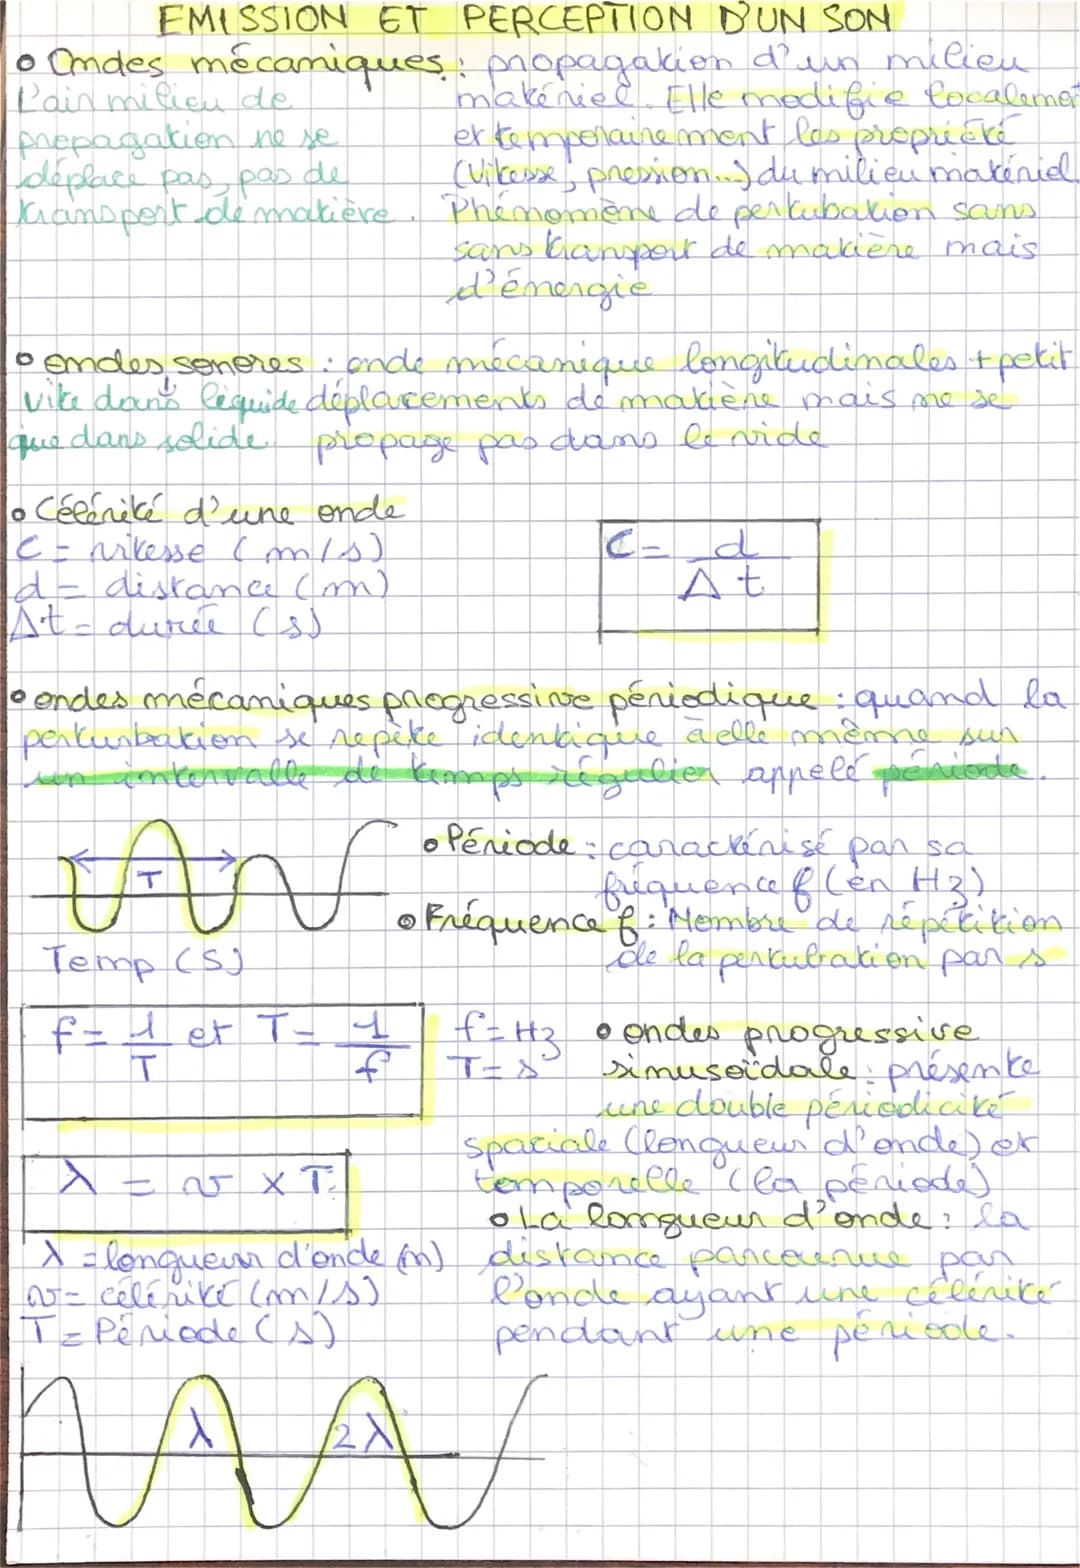 EMISSION ET PERCEPTION D'UN SON
• Ondes mécaniques : propagation d'un milieu
L'air milieu de
propagation ne se
déplace pas, pas de
transport de matière.
matériel. Elle modifie localement
et temporairement les propriété
(vitesse, pression...) du milieu matériel.
Phénomène de pertubation sans
sans transport de matière mais
d'énergie
• ondes sonores : onde mécanique longitudinales + petit
vite dans liquide
que dans solide
déplacements de matière mais ne se
propage pas dans le vide
• Célérité d'une onde
C = vitesse (m/s)
d = distance (m)
Δt = durée (s)
C = d / Δt
• ondes mécaniques progressive périodique : quand la
perturbation se répète identique à elle même sur
un intervalle de temps régulier appelé période.
T
Temp (S)
• Période : caractérisé par sa
fréquence f (en Hz)
• Fréquence f : Nombre de répétition
de la pertubation par s
f = 1/T et T = 1/f
f = Hz
T = s
• ondes progressive
sinusoïdale : présente
une double périodicité
spaciale (longueur d'onde) et
temporelle (la période)
λ = v x T
λ = longueur d'onde (m)
v = célérité (m/s)
T = Période (s)
• La longueur d'onde : la
distance parcourue par
l'onde ayant une célérité
pendant une période.
λ
2λ